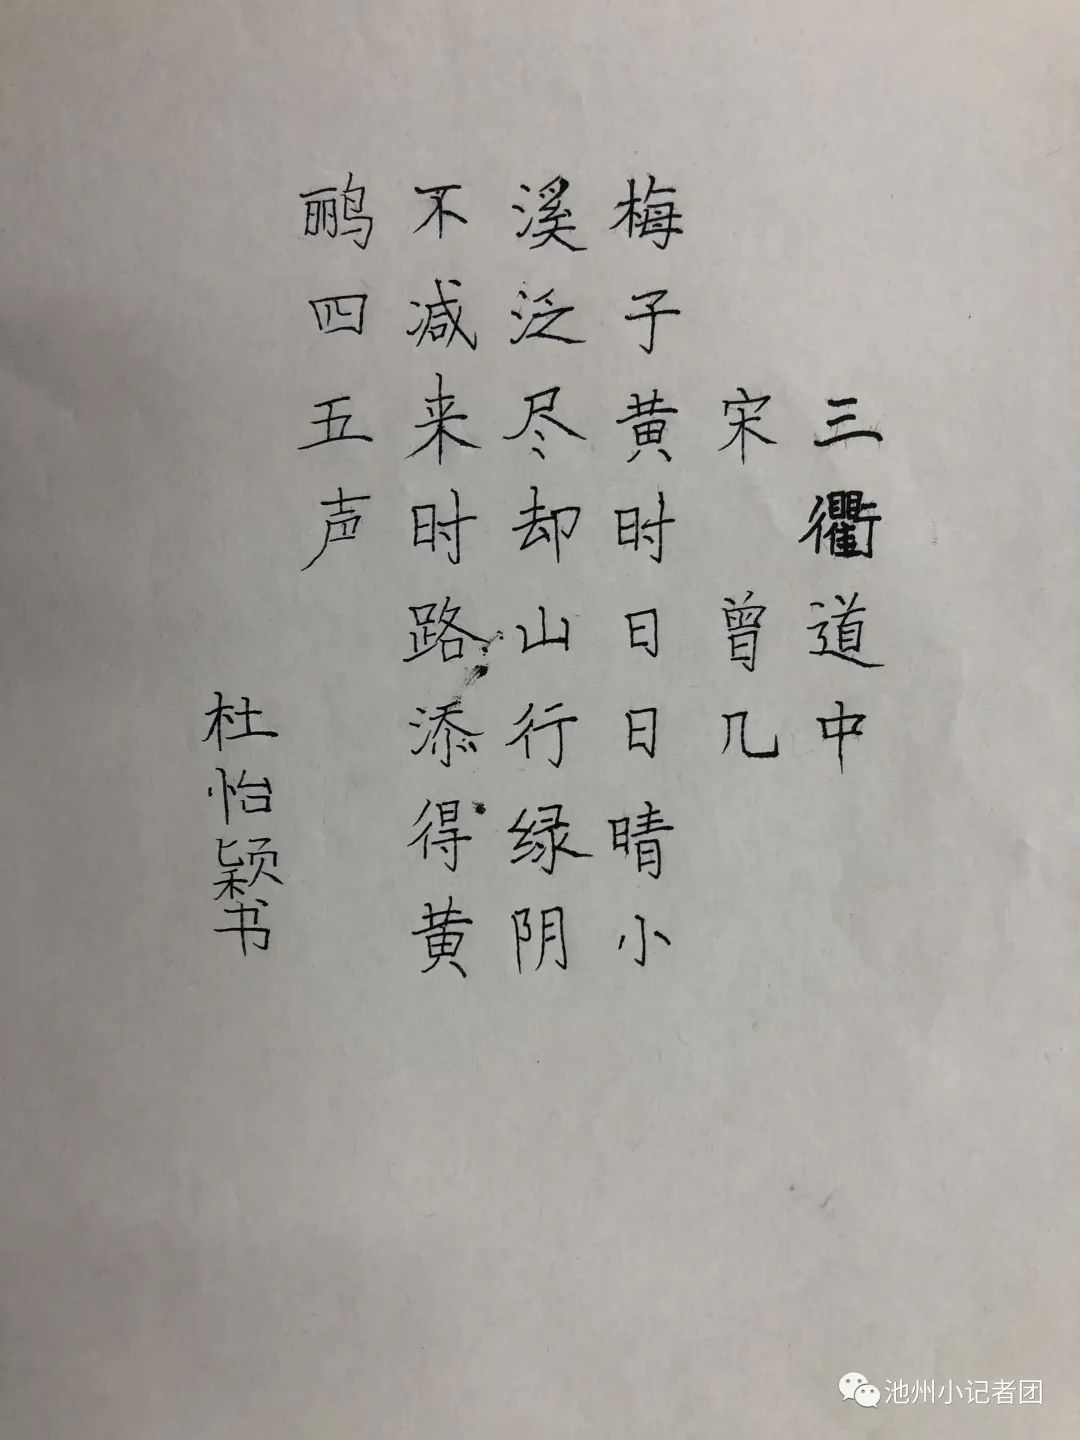 三衢道中
宋 曾几
梅子黄时日日晴小
溪泛尽却山行绿阴
不减来时路添得黄
鹂四五声
杜怡颖书
池州小记者团